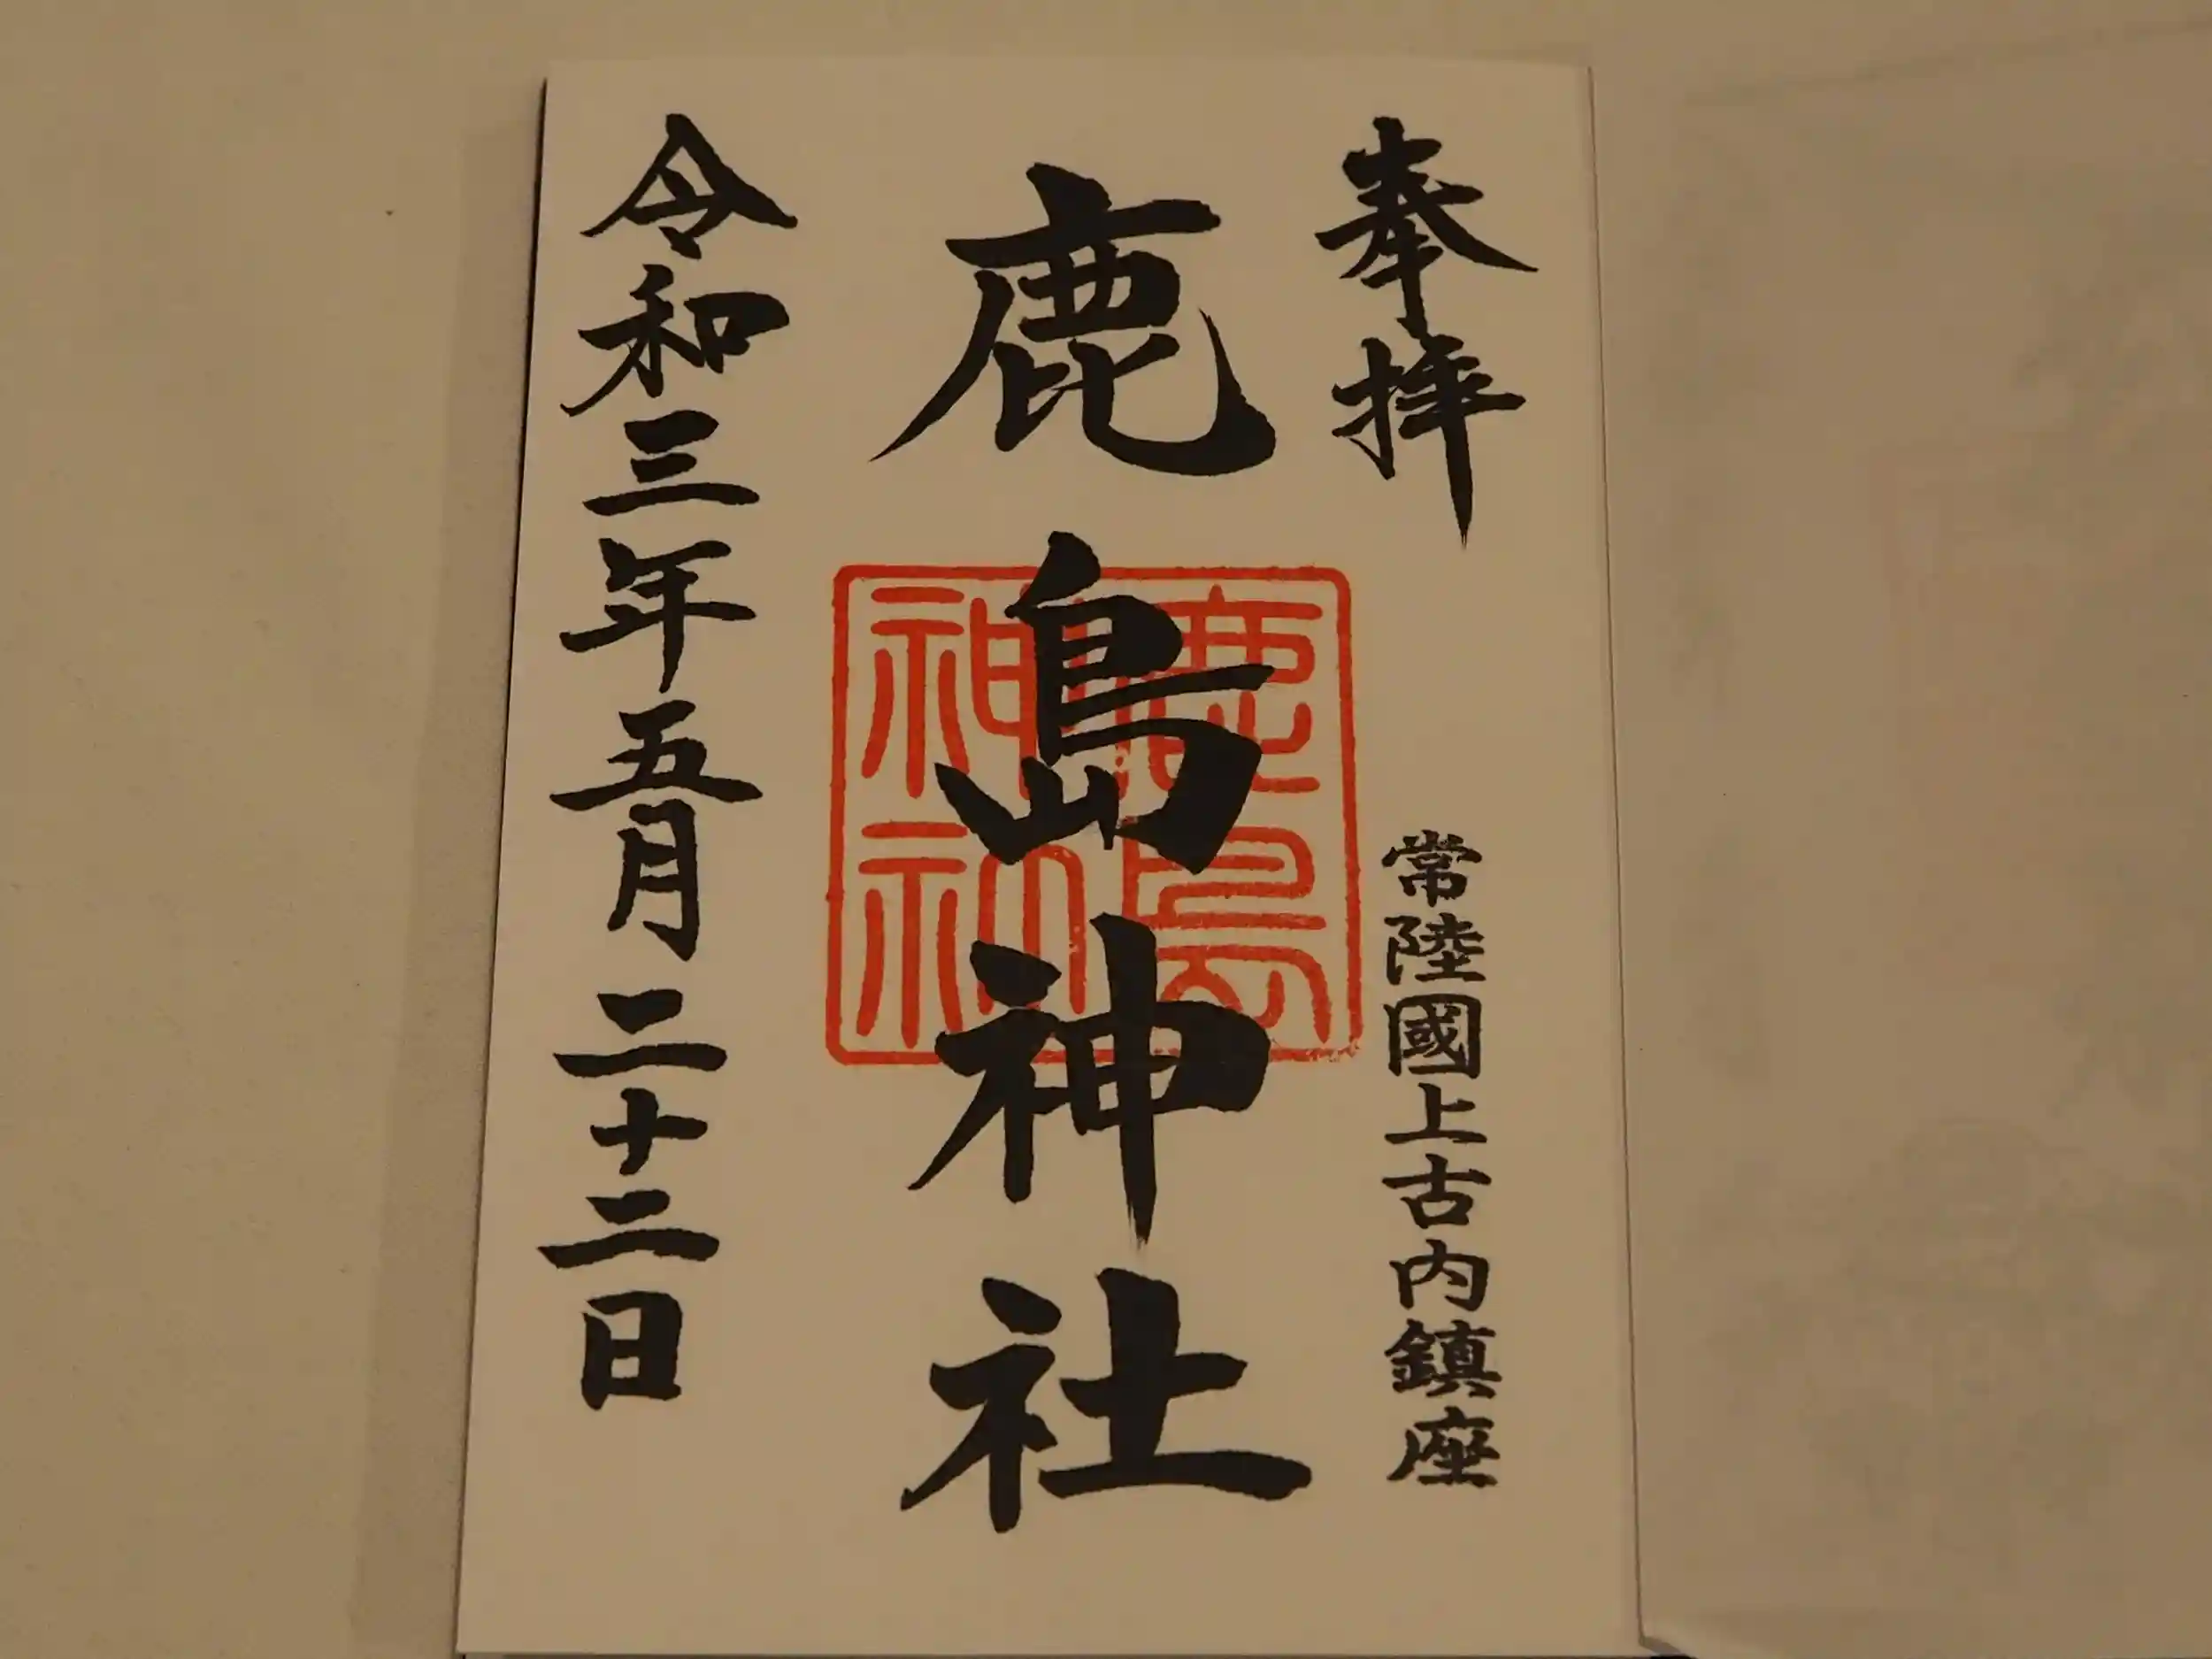 奉拝
常陸國上古内鎮座
鹿島神社
鹿島
神社
令和三年五月二十二日